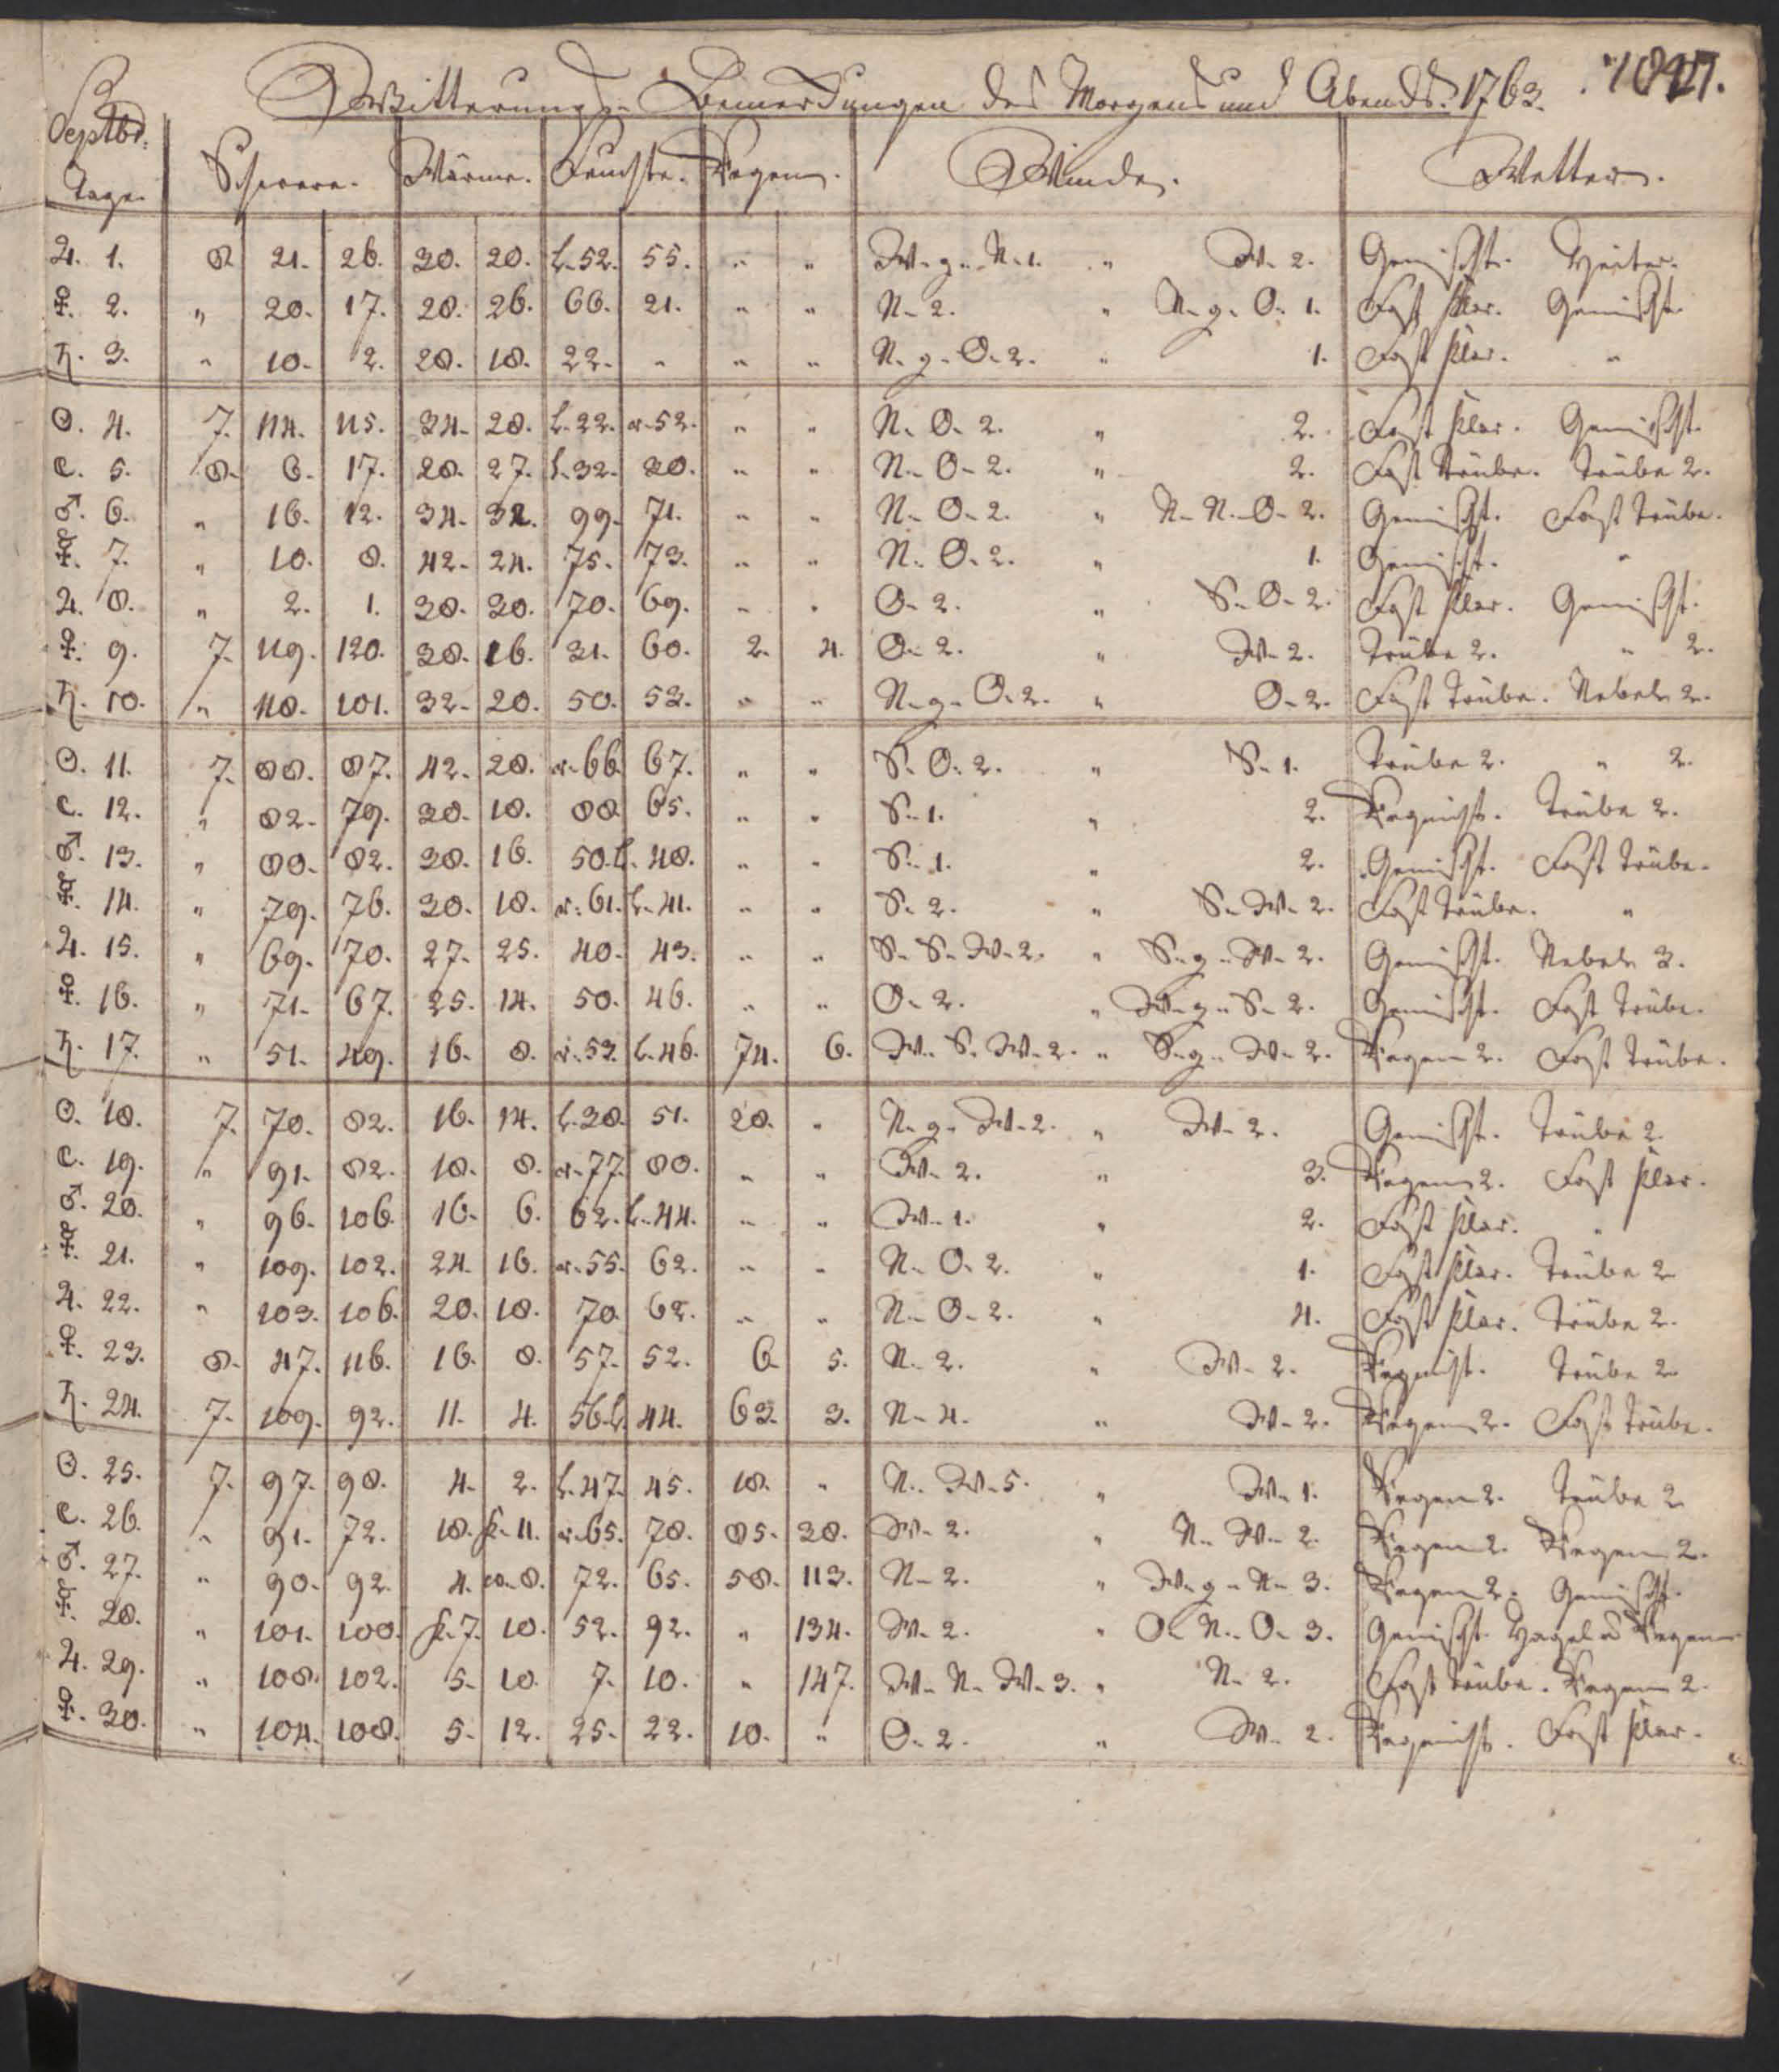 Witterungs-Bemerckungen des Morgens und Abends. 1763.
Septbr:
Tage. Schwere. Wärme. Feuchte. Regen. Winde. Wetter.
♃. 1. 8 21. 26. 30. 20. l-52. 55. " " W-g-N-1. " W-2. Gemischt. Heiter.
♀. 2. " 20. 17. 28. 26. 66. 21. " " N-2. " N-g-O-1. Fast klar. Gemischt.
♄. 3. " 10. 2. 28. 18. 22. " " " N-g-O-2. " 1. Fast klar. "
☉. 4. 7. 114. 115. 34. 28. l-22. r-52. " " N-O-2. " 2. Fast klar. Gemischt.
☾. 5. 8. 6. 17. 28. 27. l-32. 20. " " N-O-2. " 2. Fast trübe. Trübe 2.
♂. 6. " 16. 12. 34. 32. 99. 71. " " N-O-2. " N-N-O-2. Gemischt. Fast trübe.
☿. 7. " 10. 8. 42. 24. 75. 73. " " N-O-2. " 1. Gemischt. "
♃. 8. " 2. 1. 38. 30. 70. 69. " " O-2. " S-O-2. Fast klar. Gemischt.
♀. 9. 7. 119. 120. 38. 26. 31. 60. 2. 4. O-2. " W-2. Trübe 2. " 2.
♄. 10. " 118. 101. 32. 20. 50. 53. " " N-g-O-2. " O-2. Fast trübe. Nebel 2.
☉. 11. 7. 88. 87. 42. 28. r-66. 67. " " S-O-2. " S-1. Trübe 2. " 2.
☾. 12. " 82. 79. 30. 18. 88. 65. " " S-1. " 2. Regnicht. Trübe 2.
♂. 13. " 80. 82. 38. 16. 50. l-48. " " S-1. " 2. Gemischt. Fast trübe.
☿. 14. " 79. 76. 30. 18. r-61. l-41. " " S-2. " S-W-2. Fast trübe. "
♃. 15. " 69. 70. 27. 25. 40. 43. " " S-S-W-2. " S-g-W-2. Gemischt. Nebel 3.
♀. 16. " 71. 67. 25. 14. 50. 46. " " O-2. " W-g-S-2. Gemischt. Fast trübe.
♄. 17. " 51. 49. 16. 8. r-52. l-46. 74. 6. W-S-W-2. " S-g-W-2. Regen 2. Fast trübe.
☉. 18. 7. 70. 82. 16. 14. l-38. 51. 28. " N-g-W-2. " W-2. Gemischt. Trübe 2.
☾. 19. " 91. 82. 18. 8. r-77. 80. " " W-2. " 3. Regen 2. Fast klar.
♂. 20. " 96. 106. 16. 6. 62. l-44. " " W-1. " 2. Fast klar. "
☿. 21. " 109. 102. 24. 16. r-55. 62. " " N-O-2. " 1. Fast klar. Trübe 2.
♃. 22. " 103. 106. 20. 18. 70. 62. " " N-O-2. " 4. Fast klar. Trübe 2.
♀. 23. 8. 47. 116. 16. 8. 57. 52. 6. 5. N-2. " W-2. Regnicht. Trübe 2.
♄. 24. 7. 109. 92. 11. 4. 56. l-44. 63. 3. N-4. " W-2. Regen 2. Fast trübe.
☉. 25. 7. 97. 98. 4. 2. l-47. 45. 18. " N-W-5. " W-1. Regen 2. Trübe 2.
☾. 26. " 91. 72. 18. k-11. r-65. 78. 85. 38. W-2. " N-W-2. Regen 2. Regen 2.
♂. 27. " 90. 92. 4. 8. 72. 65. 58. 113. N-2. " W-g-N-3. Regen 2. Gemischt.
☿. 28. " 101. 100. k-7. 10. 52. 92. " 134. W-2. " O-N-O-3. Gemischt. Hagel u Regen
♃. 29. " 108. 102. 5. 10. 7. 10. " 147. W-N-W-3. " N-2. Fast trübe. Regen 2.
♀. 30. " 104. 108. 5. 12. 25. 22. 10. " O-2. " W-2. Regnicht. Fast klar.